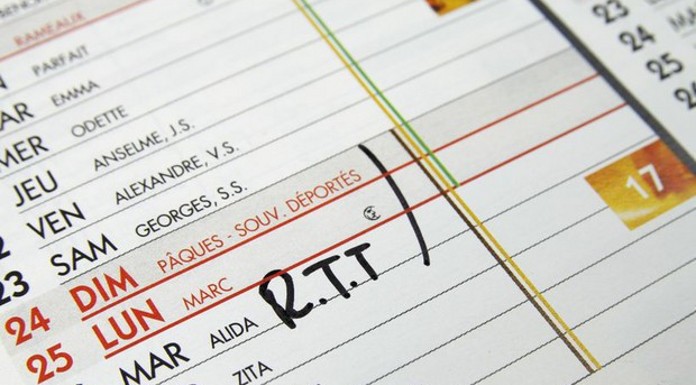 RAMEAUX
PARFAIT
EMMA
MER ODETTE
JEU ANSELME, J.S.
VEN ALEXANDRE, V.S.
23 SAM GEORGES, S.S.
24 DIM PÂQUES - SOUV. DÉPORTÉS
25 LUN MARC R.T.T
MAR ALIDA
ZITA
17
23
24
25